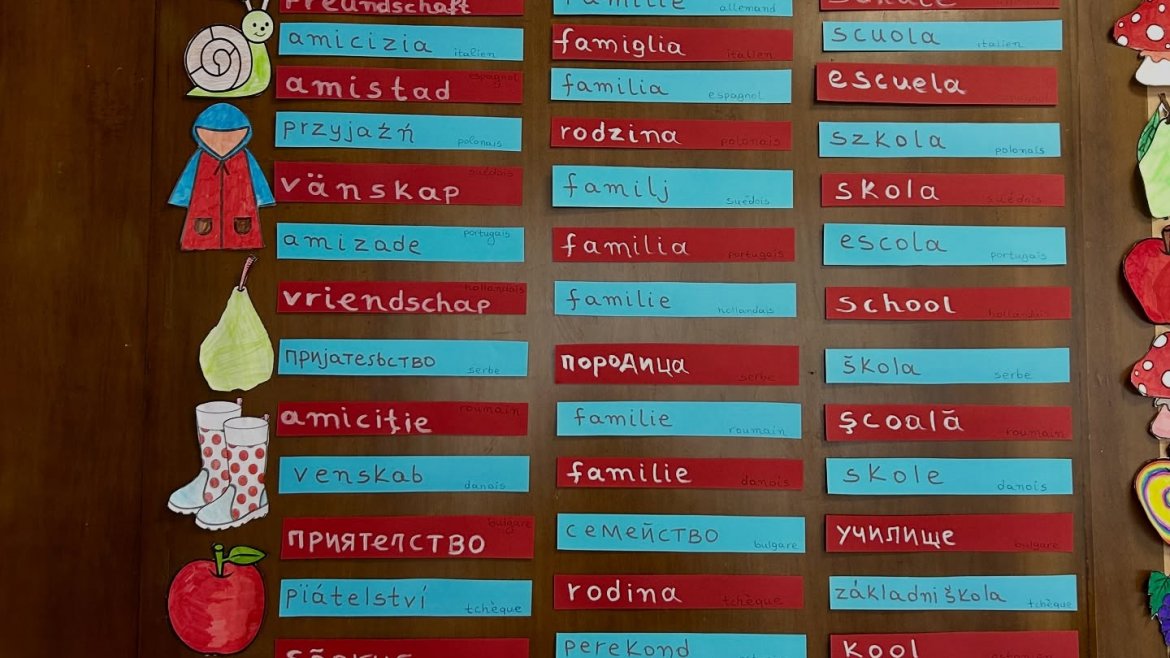 freundschaft familie allemand schule
amicizia italien famiglia italien scuola italien
amistad espagnol familia espagnol escuela
przyjaźń polonais rodzina polonais szkola polonais
vänskap suédois familj suédois skola suédois
amizade portugais familia portugais escola portugais
vriendschap hollandais familie hollandais school hollandais
пријатељство serbe породица serbe škola serbe
amiciţie roumain familie roumain şcoală roumain
venskab danois familie danois skole danois
приятелство bulgare семейство bulgare училище bulgare
pïátelství tchèque rodina tchèque základni škola tchèque
perekond kool